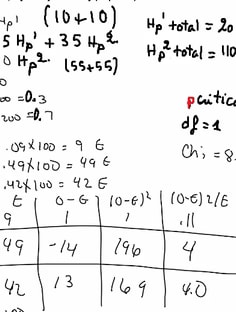 Hp' (10+10)
Hp' total = 20
5 Hp' + 35 Hp²
Hp² total = 110
0 Hp² (55+55)
0
00 = 0.3
200 = 0.7
df = 1
.09x100 = 9 E
Chi = 8.
.49x100 = 49 E
.42x100 = 42 E
E O-E (O-E)² (O-E)²/E
9 1 1 .11
49 -14 196 4
42 13 169 4.0
100